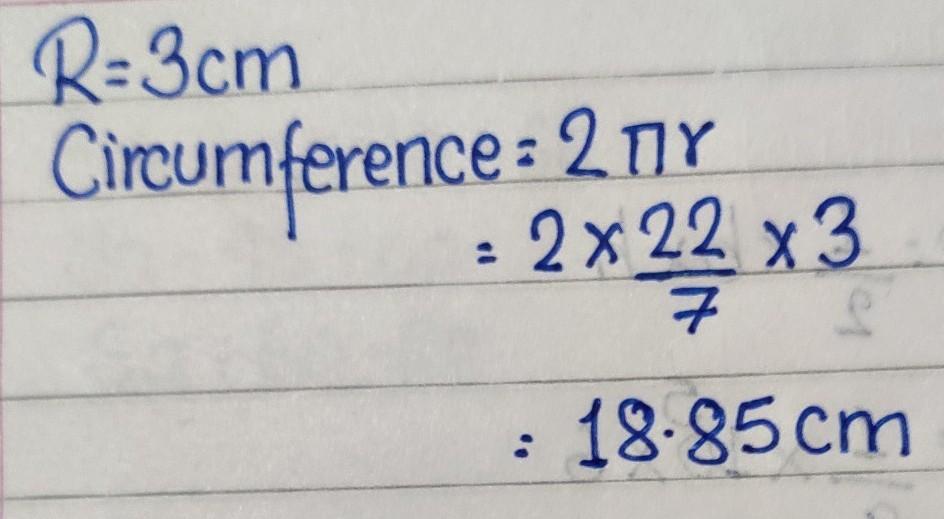 R=3cm
Circumference = 2πr
= 2 × 22/7 × 3
= 18.85cm